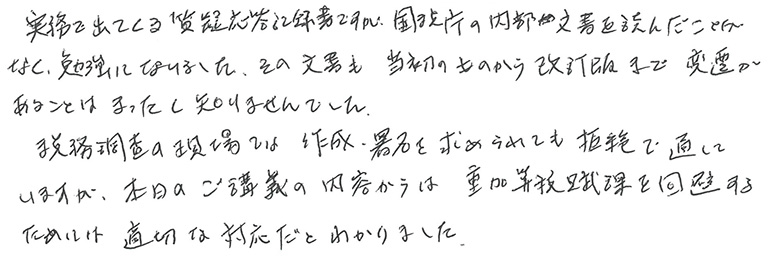 実務で出てくる質疑応答記録書ですが、国税庁の内部の文書を読んだことが
なく、勉強になりました。その文書も 当初のものから改訂版まで 変遷が
あることは まったく知りませんでした。
税務調査の現場では 作成・署名を求められても拒絶で通して
いますが、本日のご講義の内容からは 重加算税賦課を回避する
ためには 適切な対応だとわかりました。